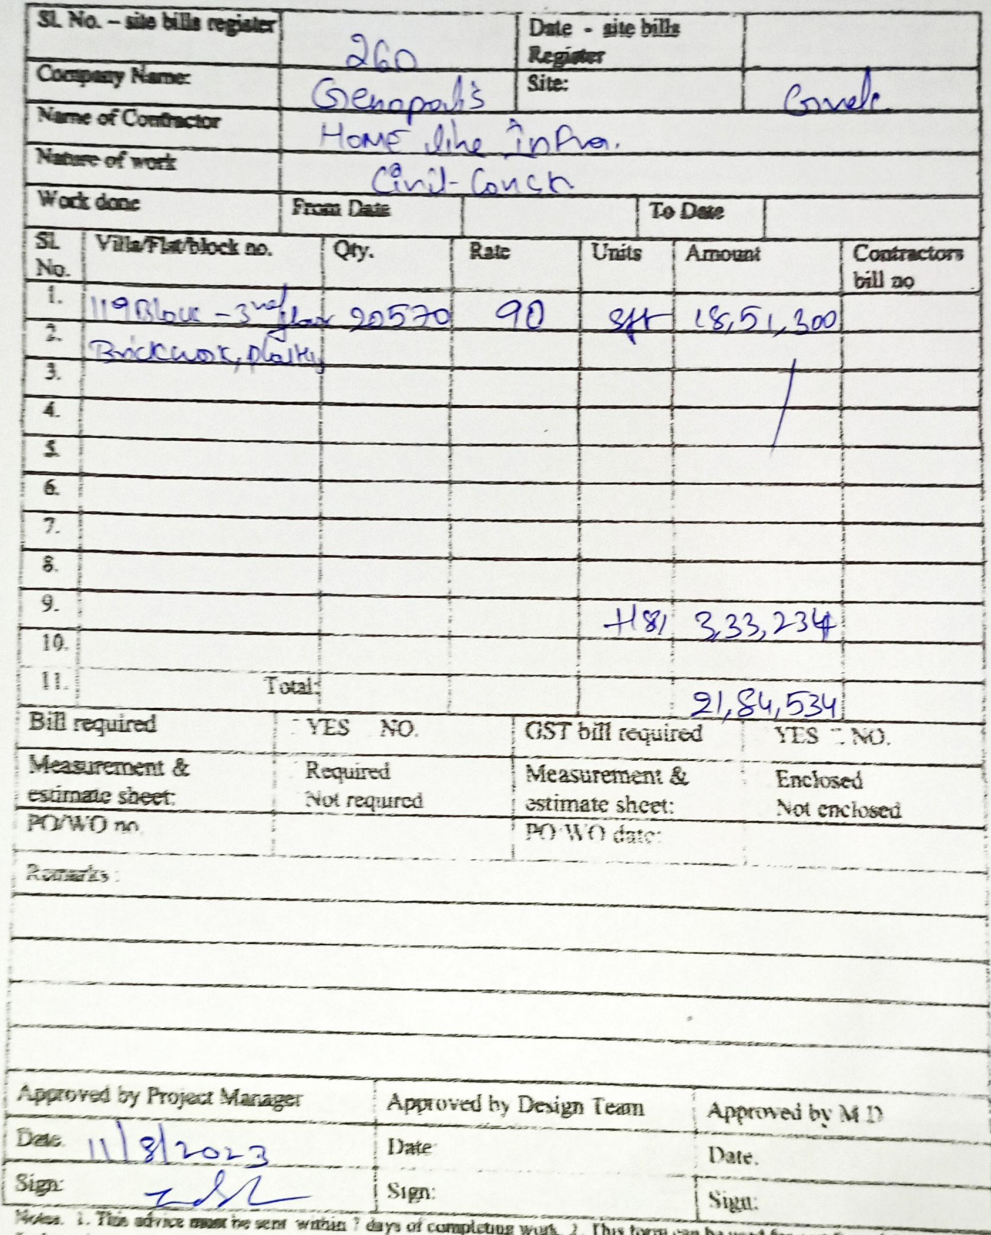 Sl. No. – site bills register 260 Date - site bills Register
Company Name: Genopolis Site:
Name of Contractor HOME line infra.
Nature of work Civil-Const
Work done From Date To Date
Sl. No. Villa/Flat/block no. Qty. Rate Units Amount Contractors bill no
1. 119 Block - 3rd floor 20570 90 sft 18,51,300
2. Brickwork, plastry
3.
4.
5.
6.
7.
8.
9. +18% 3,33,234
10.
11. Total: 21,84,534
Bill required YES NO. GST bill required YES NO.
Measurement & estimate sheet: Required Not required Measurement & estimate sheet: Enclosed Not enclosed
PO/WO no. PO/WO date:
Remarks:
Approved by Project Manager Approved by Design Team Approved by M D
Date. 11/8/2023 Date: Date.
Sign: Sign: Sign:
Notes. 1. This advice must be sent within 7 days of completing work. 2. This form can be used for